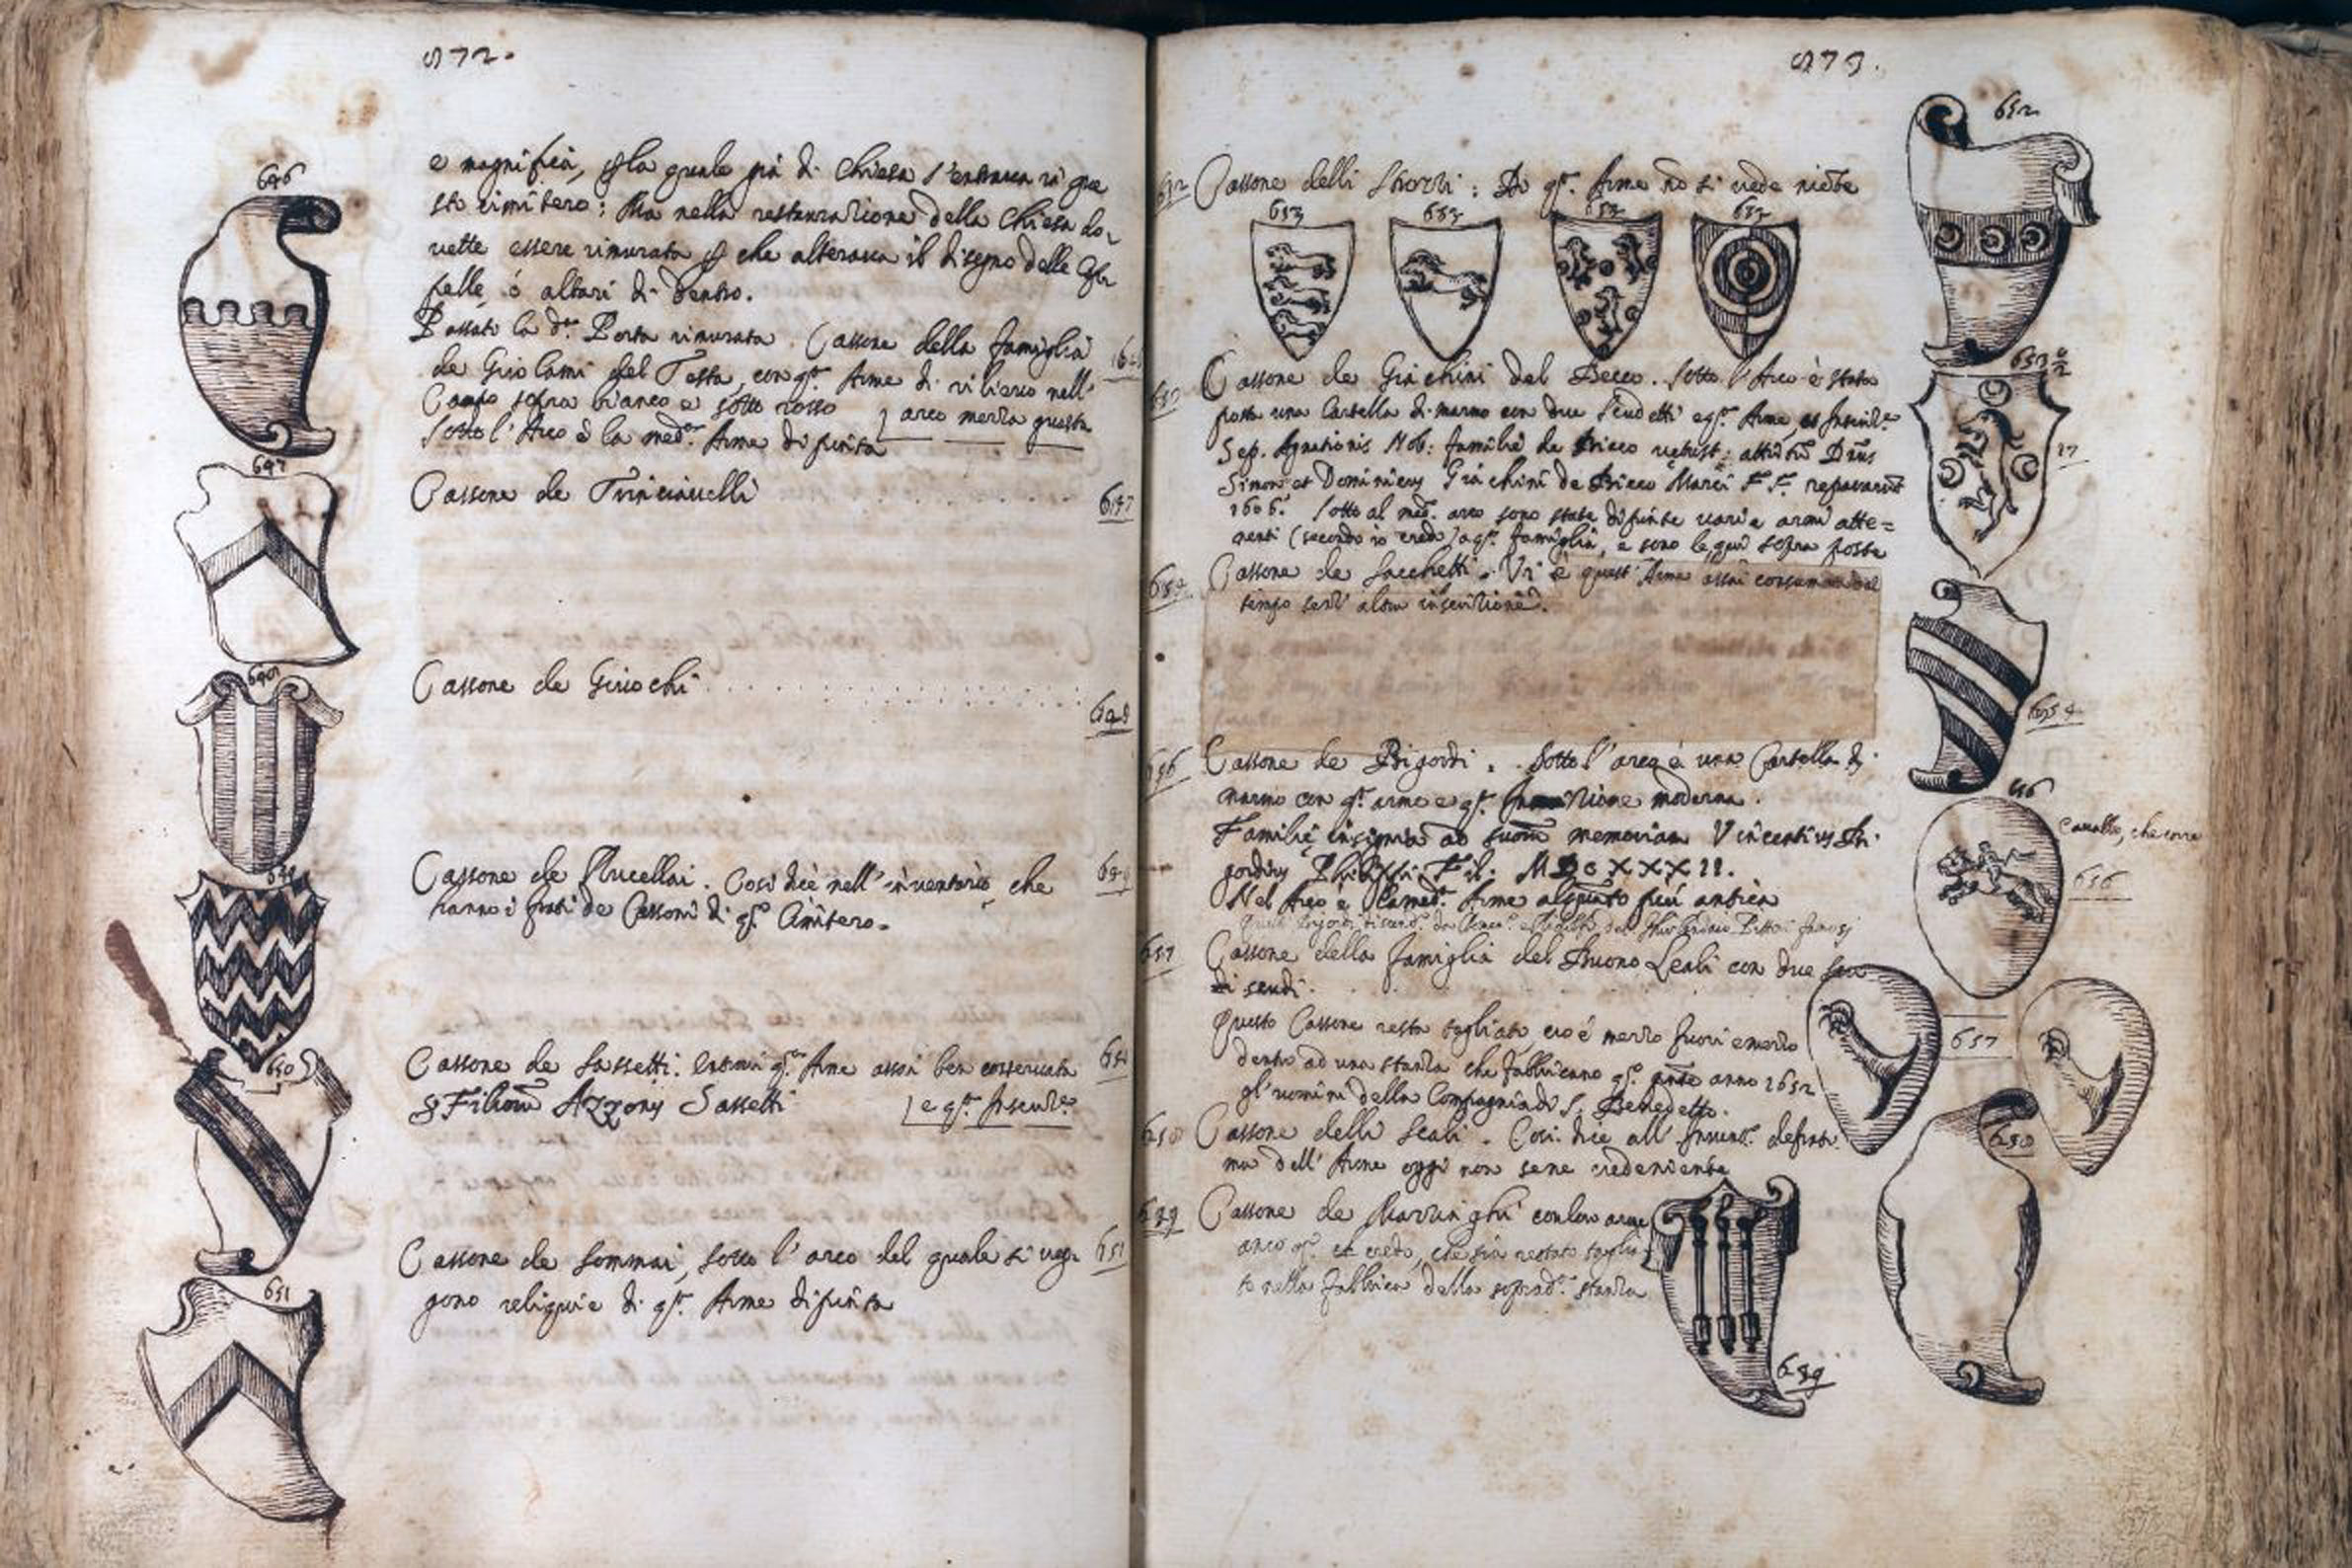 572.
646
e magnifica, la quale già di Chiesa s'entrava in que
sto cimitero: Ma nella restaurazione della Chiesa do-
vette essere rimurata che alterava il disegno delle
pelle, ò altari di dentro.
Passati la d.ª Porta rimurata. Cassone della famiglia
de Girolami del Testa, con q.st Arme di rilievo nell'
Campo sopra bianco e sotto rosso arco mezza guasta
sotto l'Arco è la med.ª Arme dipinta
647
Cassone de Trinciavelli 647
648
Cassone de Giuochi 648
649
Cassone de Rucellai. Così dice nell'inventario, che 649
hanno i frati de Cassoni di q.º Cimitero.
650
Cassone de Sassetti. q.st Arme assai ben conservata 650
Filiorum Azzonis Sassetti e q.st Inscrit.e
651
Cassone de Sommai, sotto l'arco del quale si veg- 651
gono reliquie di q.st Arme dipinta
573.
652
652 Cassone delli Strozzi: Di q.st Arme nō si vede niēte
653 653 653 653
653
Cassone de Giachini del Becco. Sotto l'Arco è stata
posta una Cartella di marmo con due Scudetti e q.st Arme, et Inscrit.e
Sep. Agnationis Nob: familie de Bicco vetust:
Simon et Dominicus Giachini de Bicco Marci F F. repararūt
1606. Sotto al med. arco sono state dipinte varie armi atte=
nenti (secondo io credo) a q.st famiglia, e sono le qui sopra poste
654 Cassone de Sacchetti. Vi è quest'Arme assai consumata dal
tempo senz'altra inscrizione.
654
656 Cassone de Bigordi. Sotto l'arco è una Cartella di
marmo con q.st arme e q.st moderna.
656
Cavallo, che corre
656
Familie insignia ad suorū memoriam Vincentius Bi-
gordius Philippi Fil: MDCXXXII.
Nel Arco è la med.ª Arme alquāto più antica
657 Cassone della famiglia del Buono Leali con due
scudi.
657
Questo Cassone resta tagliato, cioè mezzo fuori e mezzo
dentro ad una stanza che fabbricano q.st pñte anno 1652
gl'uomini della Compagnia di S. Benedetto.
658 Cassone delli Scali. Così dice all' Invent.
ma dell'Arme oggi non se ne vede niente
658
659 Cassone de Mazzinghi con loro arme
anco q.st et credo, che sia restato taglia-
to nella fabbrica della soprad.ª stanza
659